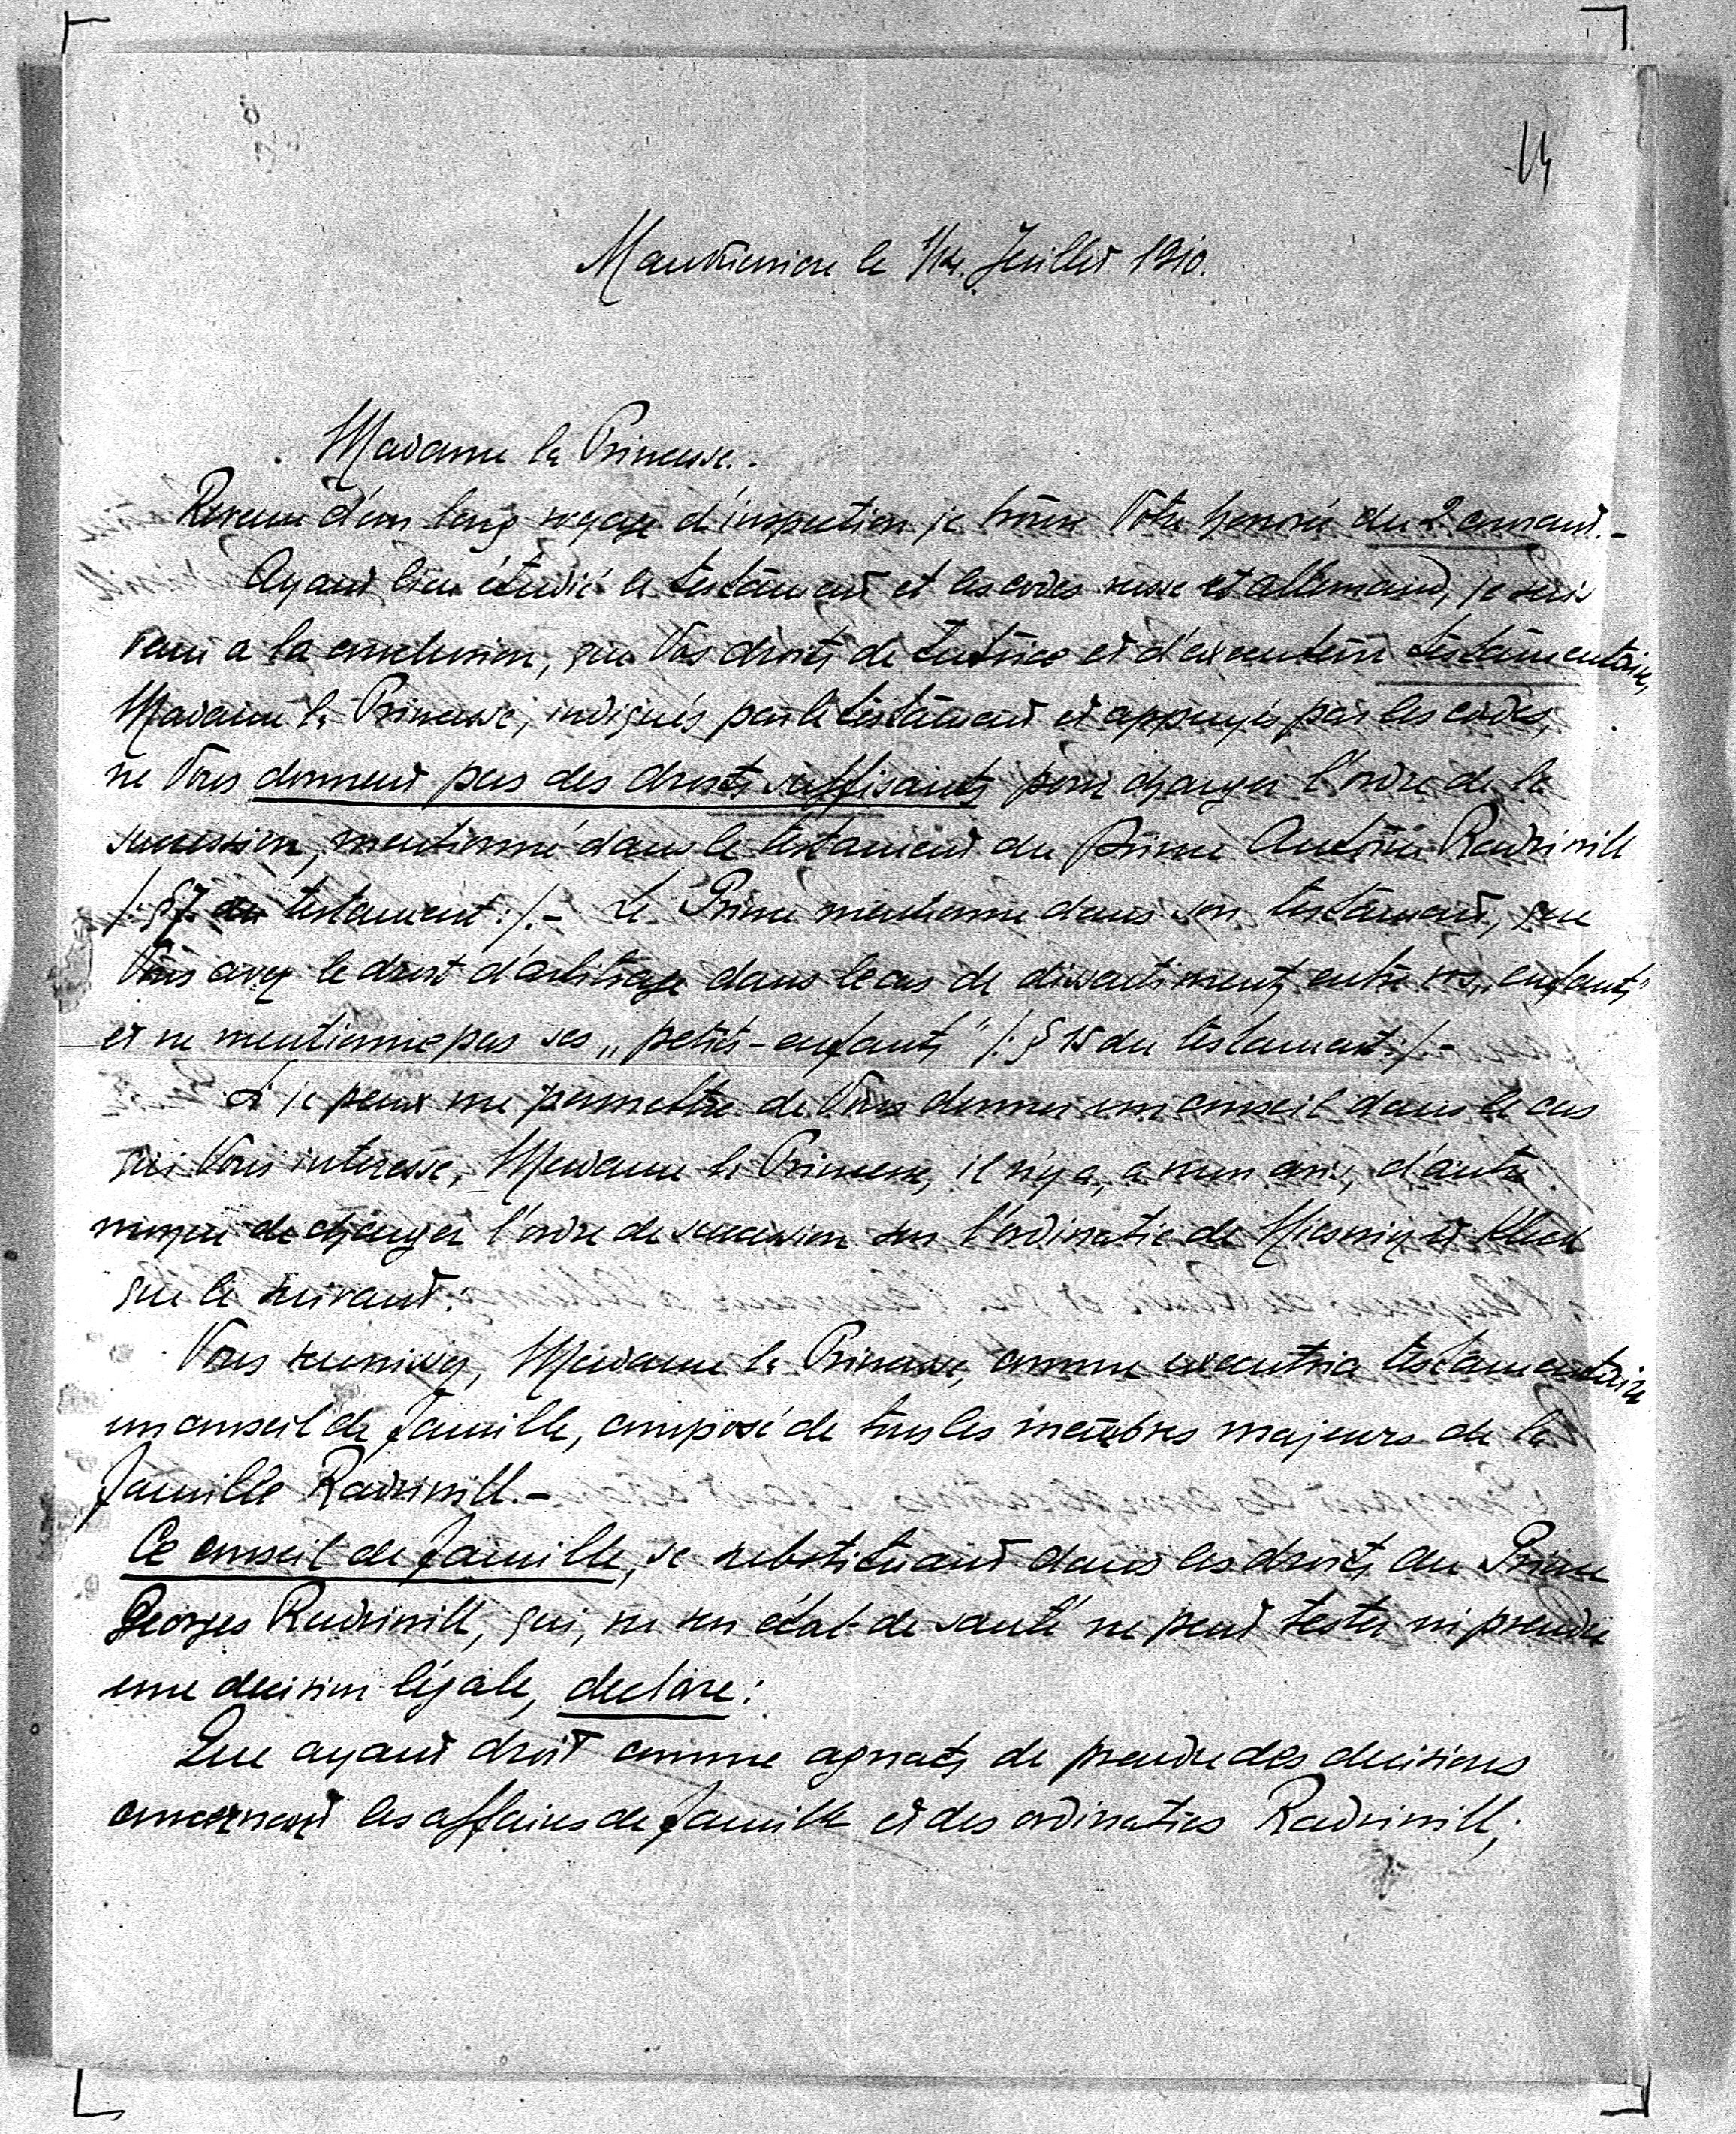 14
le 1/14. Juillet 1910.
Madame la Princesse.
Revenu d'un long voyage d'inspection je trouve Votre honorée du 2 courant.-
Ayant bien étudié le testament et les codes russe et allemand, je suis
venu a la conclusion, que Vos droits de tutrice et d'executeur testamentaire,
Madame la Princesse, indiqués par le testament et appuyés par les codes,
ne Vous donnent pas des droits suffisants pour changer l'ordre de la
succession, mentionné dans le testament du Prince Antoine Radziwill
/: § 7. du testament :/.- Le Prince mentionne dans son testament, que
Vous avez le droit d'arbitrage dans le cas de dissentiments entre vos „enfants"
et ne mentionne pas ses „petits-enfants" /: § 15 du testament :/-
Si je peux me permettre de Vous donner un conseil dans le cas
qui Vous interesse, Madame la Princesse, il n'y a, a mon avis, d'autre
moyen de changer l'ordre de succession sur l'ordinatie de et Kleck
que le suivant:
Vous reunissez, Madame la Princesse, comme executrice testamentaire
un conseil de famille, composé de tous les membres majeurs de la
famille Radziwill.-
Ce conseil de famille, se substituant dans les droits du Prince
Georges Radziwill, qui, vu son état de santé ne peut tester ni prendre
une decision légale, declare:
Que ayant droit comme agnats de prendre des decisions
concernant les affaires de famille et des ordinaties Radziwill;